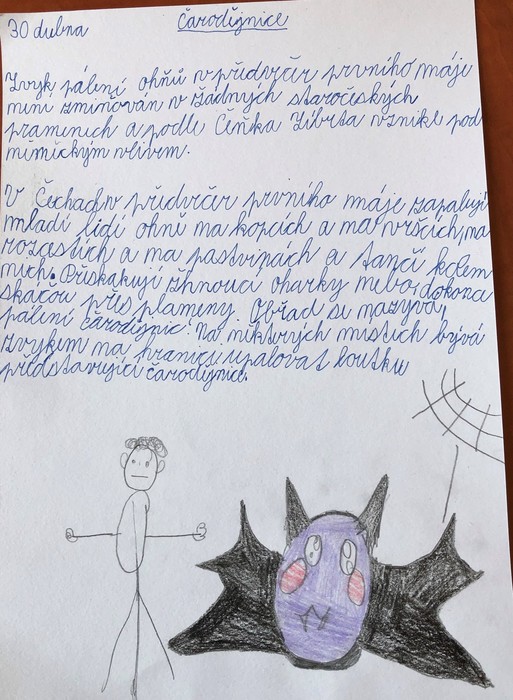 30 dubna
Čarodějnice
Zvyk pálení ohňů v předvečer prvního máje
není zmiňován v žádných staročeských
pramenech a podle Čeňka Zíbrta vznikl pod
německým vlivem.
V Čechách v předvečer prvního máje zapalují
mladí lidí ohně na kopcích a na vrších, na
rozcestích a na pastvinách a tančí kolem
nich. Přeskakují žhnoucí oharky nebo dokonce
skáčou přes plameny. Obřad se nazývá
pálení čarodějnic. Na některých místech bývá
zvykem na hranici upalovat loutku
představující čarodějnici.